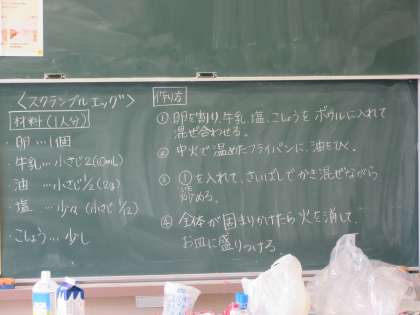 〈スクランブルエッグ〉
材料(1人分)
・卵…1個
・牛乳…小さじ2(10mL)
・油…小さじ1/2(2g)
・塩…少々(小さじ1/12)
・こしょう…少し
作り方
① 卵を割り、牛乳、塩、こしょうをボウルに入れて
混ぜ合わせる。
② 中火で温めたフライパンに、油をひく。
③ ①を入れて、さいばしでかき混ぜながら
炒める。
④ 全体が固まりかけたら火を消して、
お皿に盛りつける